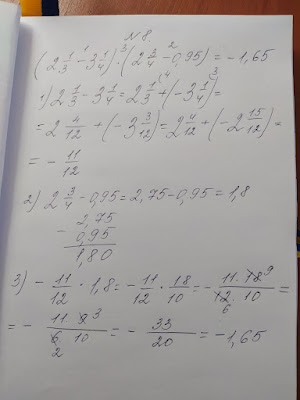 № 8.
(2 1/3 - 3 1/4) · (2 3/4 - 0,95) = -1,65
1) 2 1/3 - 3 1/4 = 2 1/3 + (-3 1/4) =
= 2 4/12 + (-3 3/12) = 2 4/12 + (-2 15/12) =
= - 11/12
2) 2 3/4 - 0,95 = 2,75 - 0,95 = 1,8
- 2,75
0,95
1,80
3) - 11/12 · 1,8 = - 11/12 · 18/10 = - 11 · 18 9 / 12 6 · 10 =
= - 11 9 3 / 6 2 · 10 = - 33/20 = -1,65